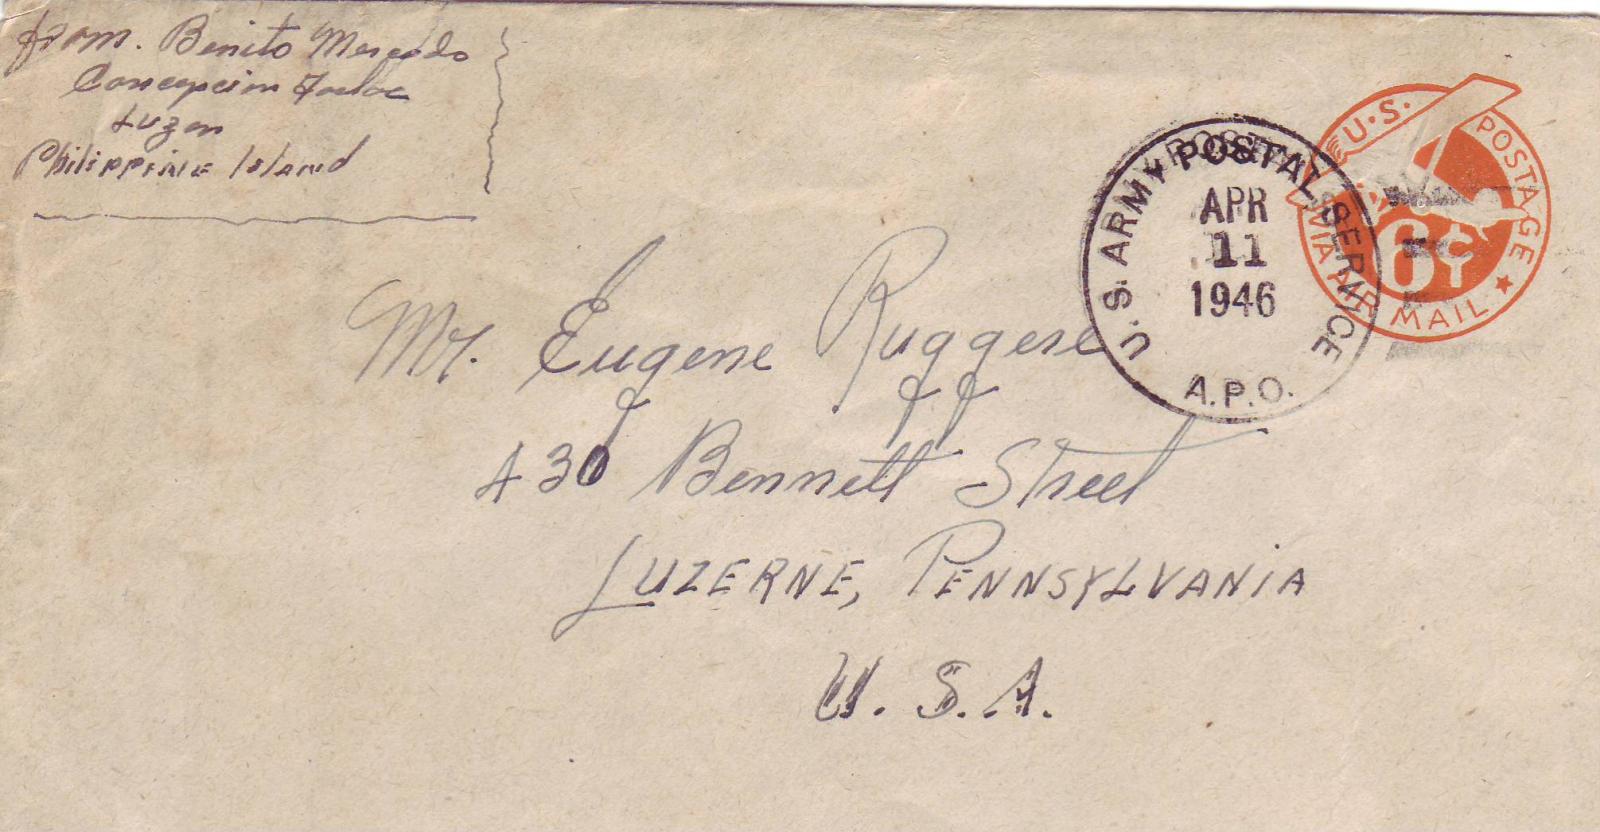 from. Benito Mercado
Concepcion Tarlac
Luzon
Philippine Island
U.S. ARMY POSTAL SERVICE
APR
11
1946
A.P.O.
U.S. POSTAGE
6¢
VIA AIR MAIL
Mr. Eugene Ruggere
430 Bennett Street
LUZERNE, PENNSYLVANIA
U.S.A.